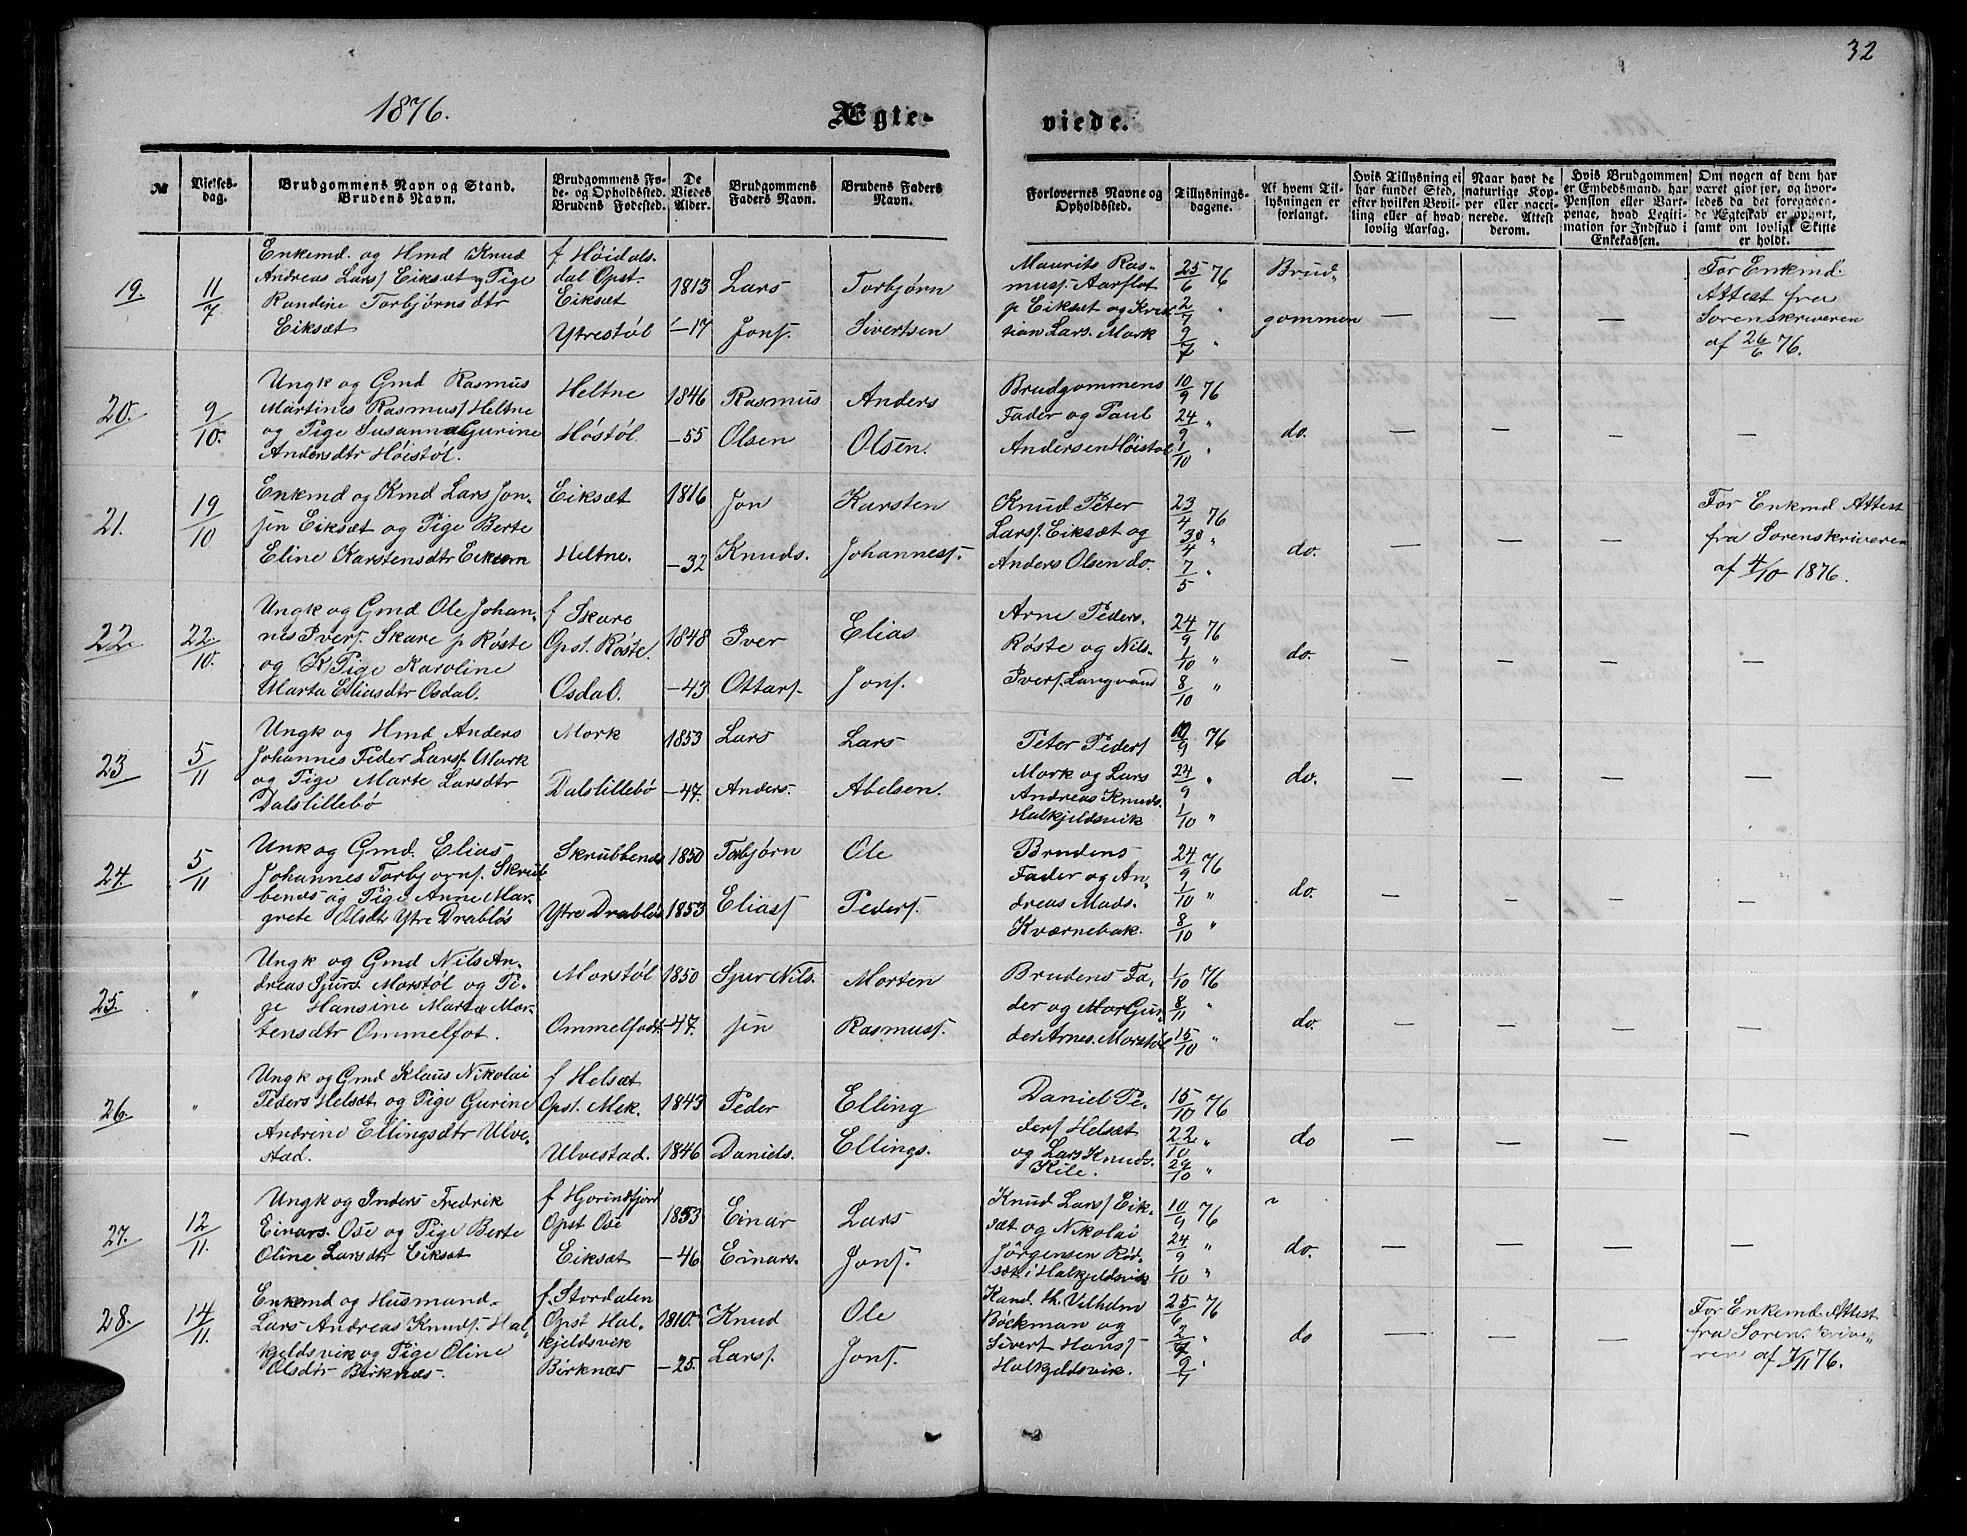 32
1876.
Ægte-
viede.
№
Vielses-
dag.
Brudgommens Navn og Stand.
Brudens Navn.
Brudgommens Fø-
de- og Opholdssted.
Brudens Fødested.
De
Viedes
Alder.
Brudgommens
Faders Navn.
Brudens Faders
Navn.
Forlovernes Navne og
Opholdssted.
Tillysnings-
dagene.
Af hvem Til-
lysningen er
forlangt.
Hvis Tillysning ei
har fundet Sted,
efter hvilken Bevil-
ling eller af hvad
lovlig Aarsag.
Naar havt de
naturlige Kop-
per eller vacci-
nerede. Attest
derom.
Hvis Brudgommen
er Embedsmand, har
Pension eller Vart-
penge, hvad Legiti-
mation for Indskud i
Enkekassen.
Om nogen af dem har
været givt før, og hvor-
ledes da det foregaaen-
de Ægteskab er ophørt,
samt om lovligt Skifte
er holdt.
19.
11/7
Enkemd. og Hmd Knud
Andreas Larsf Eiksæt og Pige
Randine Torbjørnsdtr
Eiksæt
f. Høidals-
dal Opst.
Eiksæt
Ytrestøl
1813
-17
Lars
Jonf.
Torbjørn
Sivertsen
Maurits Ras-
musf. Aarflot
p Eiksæt og Krist
ian Lars. Mork
25/6 76
2/7 "
9/7 "
Brud"
gommen
—
—
—
For Enkmd.
Attest fra
Sorenskriveren
af 26/6 76.
20.
9/10.
Ungk og Gmd Rasmus
Martines Rasmusf Heltne
og Pige Susanna Gurine
Andersdtr Høistøl.
Heltne
Høstøl
1846
-55
Rasmus
Olsen
Anders
Olsen.
Brudgommens
Fader og Paul
Andersen Høistøl
10/9 76
24/9 "
1/10 "
do.
—
—
—
—
21.
19/10
Enkmd og Kmd Lars Jon-
sen Eiksæt og Pige Berte
Eline Karstensdtr Eiksem
Eiksæt
Heltne.
1816
-32
Jon
Knuds.
Karsten
Johannesf.
Knud Peter
Larsf. Eiksæt og
Anders Olsen do.
23/4 76
30/4 "
7/5 "
do.
—
—
—
For Enkmd Attest
fra Sorenskriveren
af 4/10 1876.
22
22/10.
Ungk og Gmd Ole Johan-
nes Iverf. Skare p Røste
og K Pige Karoline
Marta Eliasdtr Osdal.
f Skare
Opst. Røste.
Osdal.
1848
-43
Iver
Ottarf.
Elias
Jonf.
Arne Peders.
Røste og Nils-
Iverf. Langvand
24/9 76
1/10 "
8/10 "
do.
—
—
—
—
23
5/11
Ungk og Hmd Anders
Johannes Peder Larsf. Mork
og Pige Marte Larsdtr
Dalslillebø
Mork
Dalslillebø
1853
-47.
Lars
Anders.
Lars
Abelsen.
Peter Pedersf
Mork og Lars
Andreas Knuds.
Halkjeldsvik
10/9 76
24/9 "
1/10 "
do.
—
—
—
—
24.
5/11
Unk og Gmd. Elias
Johannes Torbjørnf. Skrub-
benes og Pige Anne Mar-
grete Olsdtr Ytre Drabløs
Skrubbenes
Ytre Drabløs
1850
1853
Torbjørn
Eliasf
Ole
Pedersf.
Brudens
Fader og An-
dreas Mads.
Kværnebak.
24/9 76
1/10 "
8/10 "
do.
—
—
—
—
25.
"
Ungk og Gmd Nils An-
dreas Sjurs Morstøl og Pi-
ge Hansine Marta Mor-
tensdtr Ommelfot.
Morstøl
Ommelfodt
1850
-47.
Sjur Nils-
sen
Morten
Rasmusf.
Brudens Fa-
der og Mor Gun-
der Arnes. Morstøl
1/10 76
8/11 "
15/10 "
do.
—
—
—
—
26.
"
Ungk og Gmd Klaus Nikolai
Peders Helsæt og Pige Gurine
Andrine Ellingsdtr Ulve-
stad.
f Helsæt
Opst. Mek.
Ulvestad.
1843
1846
Peder
Daniels.
Elling
Ellings.
Daniel Pe-
dersf Helsæt
og Lars Knuds.
Kile.
15/10 76
22/10 "
29/10 "
do
—
—
—
—
27.
12/11.
Ungk og Inders Fredrik
Einars. Ose og Pige Berte
Oline Larsdtr Eiksæt
f Hjorindfjord
Opst Ose
Eiksæt
1853
-46
Einar
Einars.
Lars
Jonf.
Knud Larsf Eik-
sæt og Nikolai
Jørgensen Rød-
sæt i Halkjeldsvik
10/9 76
24/9 "
1/10 "
"
do.
—
—
—
—
28.
14/11.
Enkemd og Husmand
Lars Andreas Knudsf. Hal-
kjeldsvik og Pige Oline
Olsdtr Birknes.
f. Stordalen
Opst Hal-
kjeldsvik
Birknæs
1810.
-25.
Knud
Larsf.
Ole
Jonf.
Kand. th. Vilhelm
Bøckman og
Sivert Hansf
Halkjeldsvik.
25/6 76
2/7 "
9/7 "
do
—
—
—
For Enkemd. Attest
fra Soren.krive"
ren af 7/11 76.